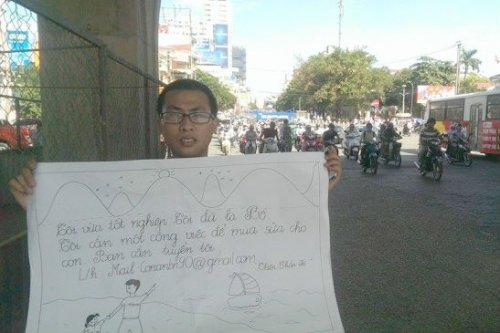 Tôi vừa tốt nghiệp Tôi đã là Bố
Tôi cần một công việc để mua sữa cho
con Bạn cần tuyển tôi
L/h Mail Conanbn90@gmail.com